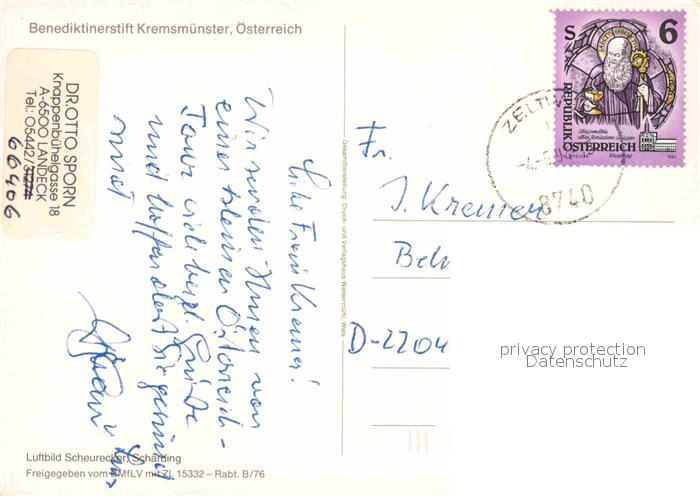 Benediktinerstift Kremsmünster, Österreich
DR. OTTO SPORN
Knappenbühelgasse 18
A-6500 LANDECK
Tel.: 05442/
66406
Liebe Frau Kremer!
Wir senden Ihnen von
einer kleinen Österreich-
Tour viele herzl. Grüße
und hoffen, daß Sie gesund
sind
Luftbild Scheurecker, Schärding
Freigegeben vom BMfLV mit Zl. 15332 – Rabt. B/76
Gesamtherstellung: Druck- und Verlagshaus Welsermühl, Wels
S 6
REPUBLIK
ÖSTERREICH
ZELTW
8740
Fr.
J. Kremer
D-2204
privacy protection
Datenschutz